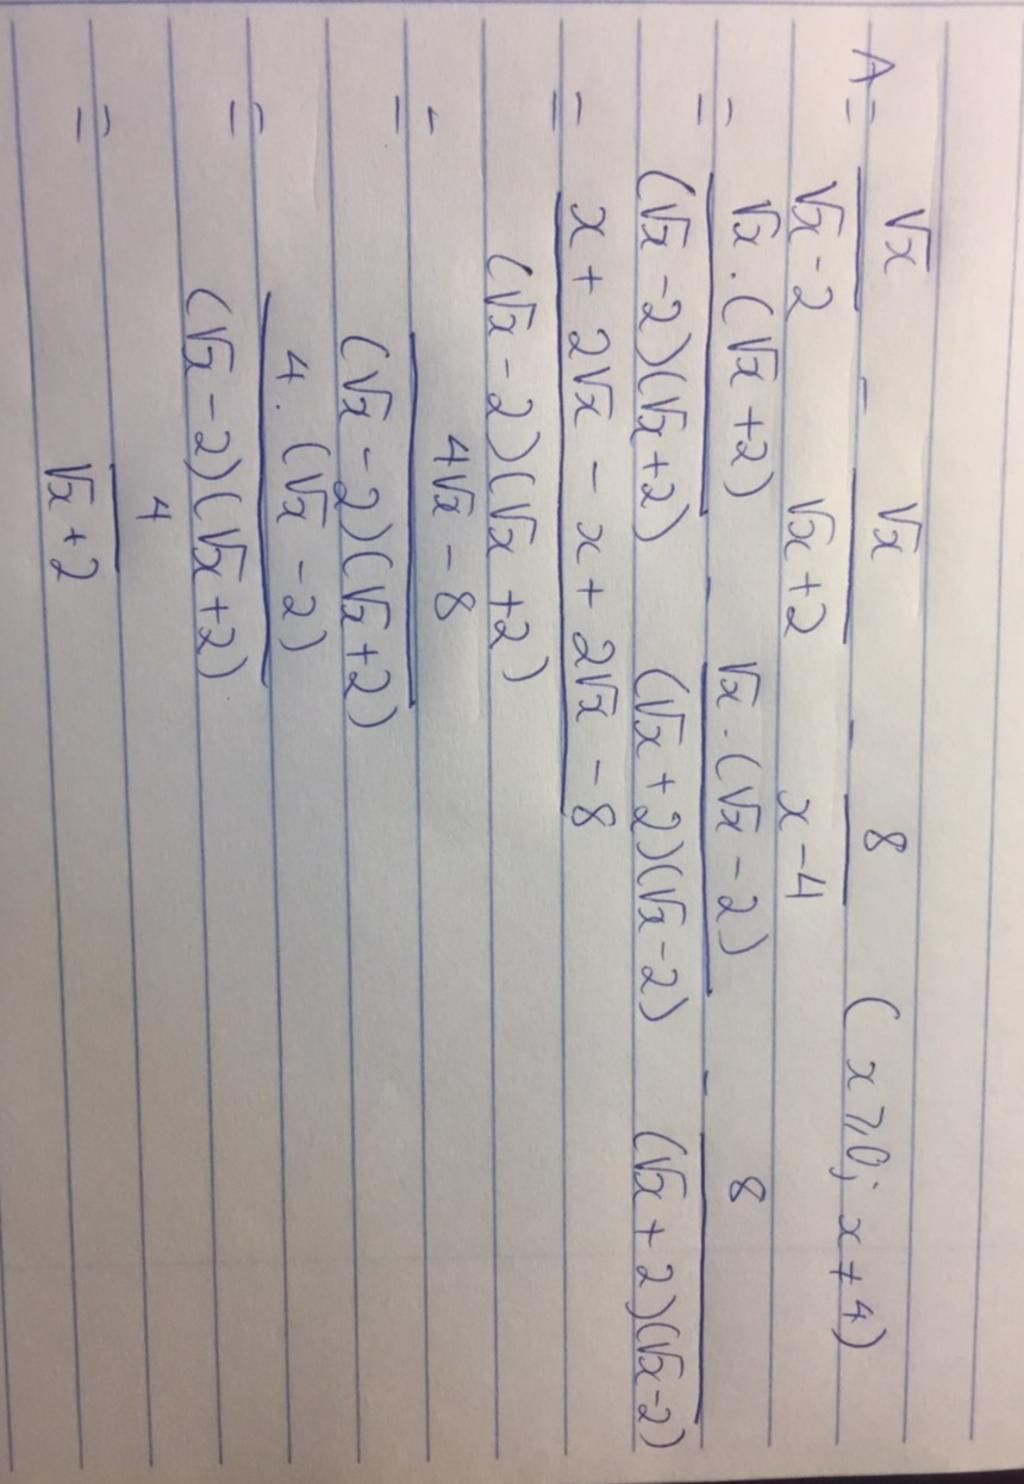 A = √x / (√x - 2) - √x / (√x + 2) - 8 / (x - 4) (x ⩾ 0; x ≠ 4)
= √x . (√x + 2) / (√x - 2)(√x + 2) - √x . (√x - 2) / (√x + 2)(√x - 2) - 8 / (√x + 2)(√x - 2)
= x + 2√x - x + 2√x - 8 / (√x - 2)(√x + 2)
= 4√x - 8 / (√x - 2)(√x + 2)
= 4 . (√x - 2) / (√x - 2)(√x + 2)
= 4 / √x + 2